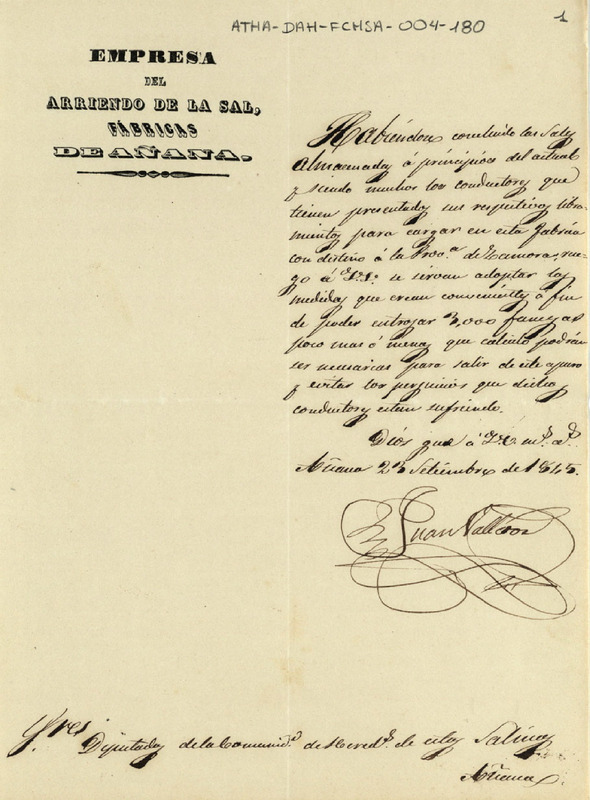 ATHA-DAH-FCHSA-004-180
1
EMPRESA
DEL
ARRIENDO DE LA SAL,
FÁBRICAS
DE AÑANA.
Habiendose concluido las Sales
Almacenadas á principios del actual
y siendo muchos los conductores que
tienen presentados sus respectivos libra-
mientos para cargar en esta fabrica
con distino á la Prov.ª de Zamora, rue-
go á se sirvan adoptar las
medidas que crean convenientes á fin
de poder entrojar 3,000 fanegas
poco mas ó menos, que calculo podrán
ser necesarias para salir de este apuro
y evitar los perjuicios que dichos
conductores estan sufriendo.
Dios gue á m.s a.s
Añana 23 Setiembre de 1845.
Juan
S.res Diputados de la Comunid.d de Hered.s de estas Salinas
Añana.